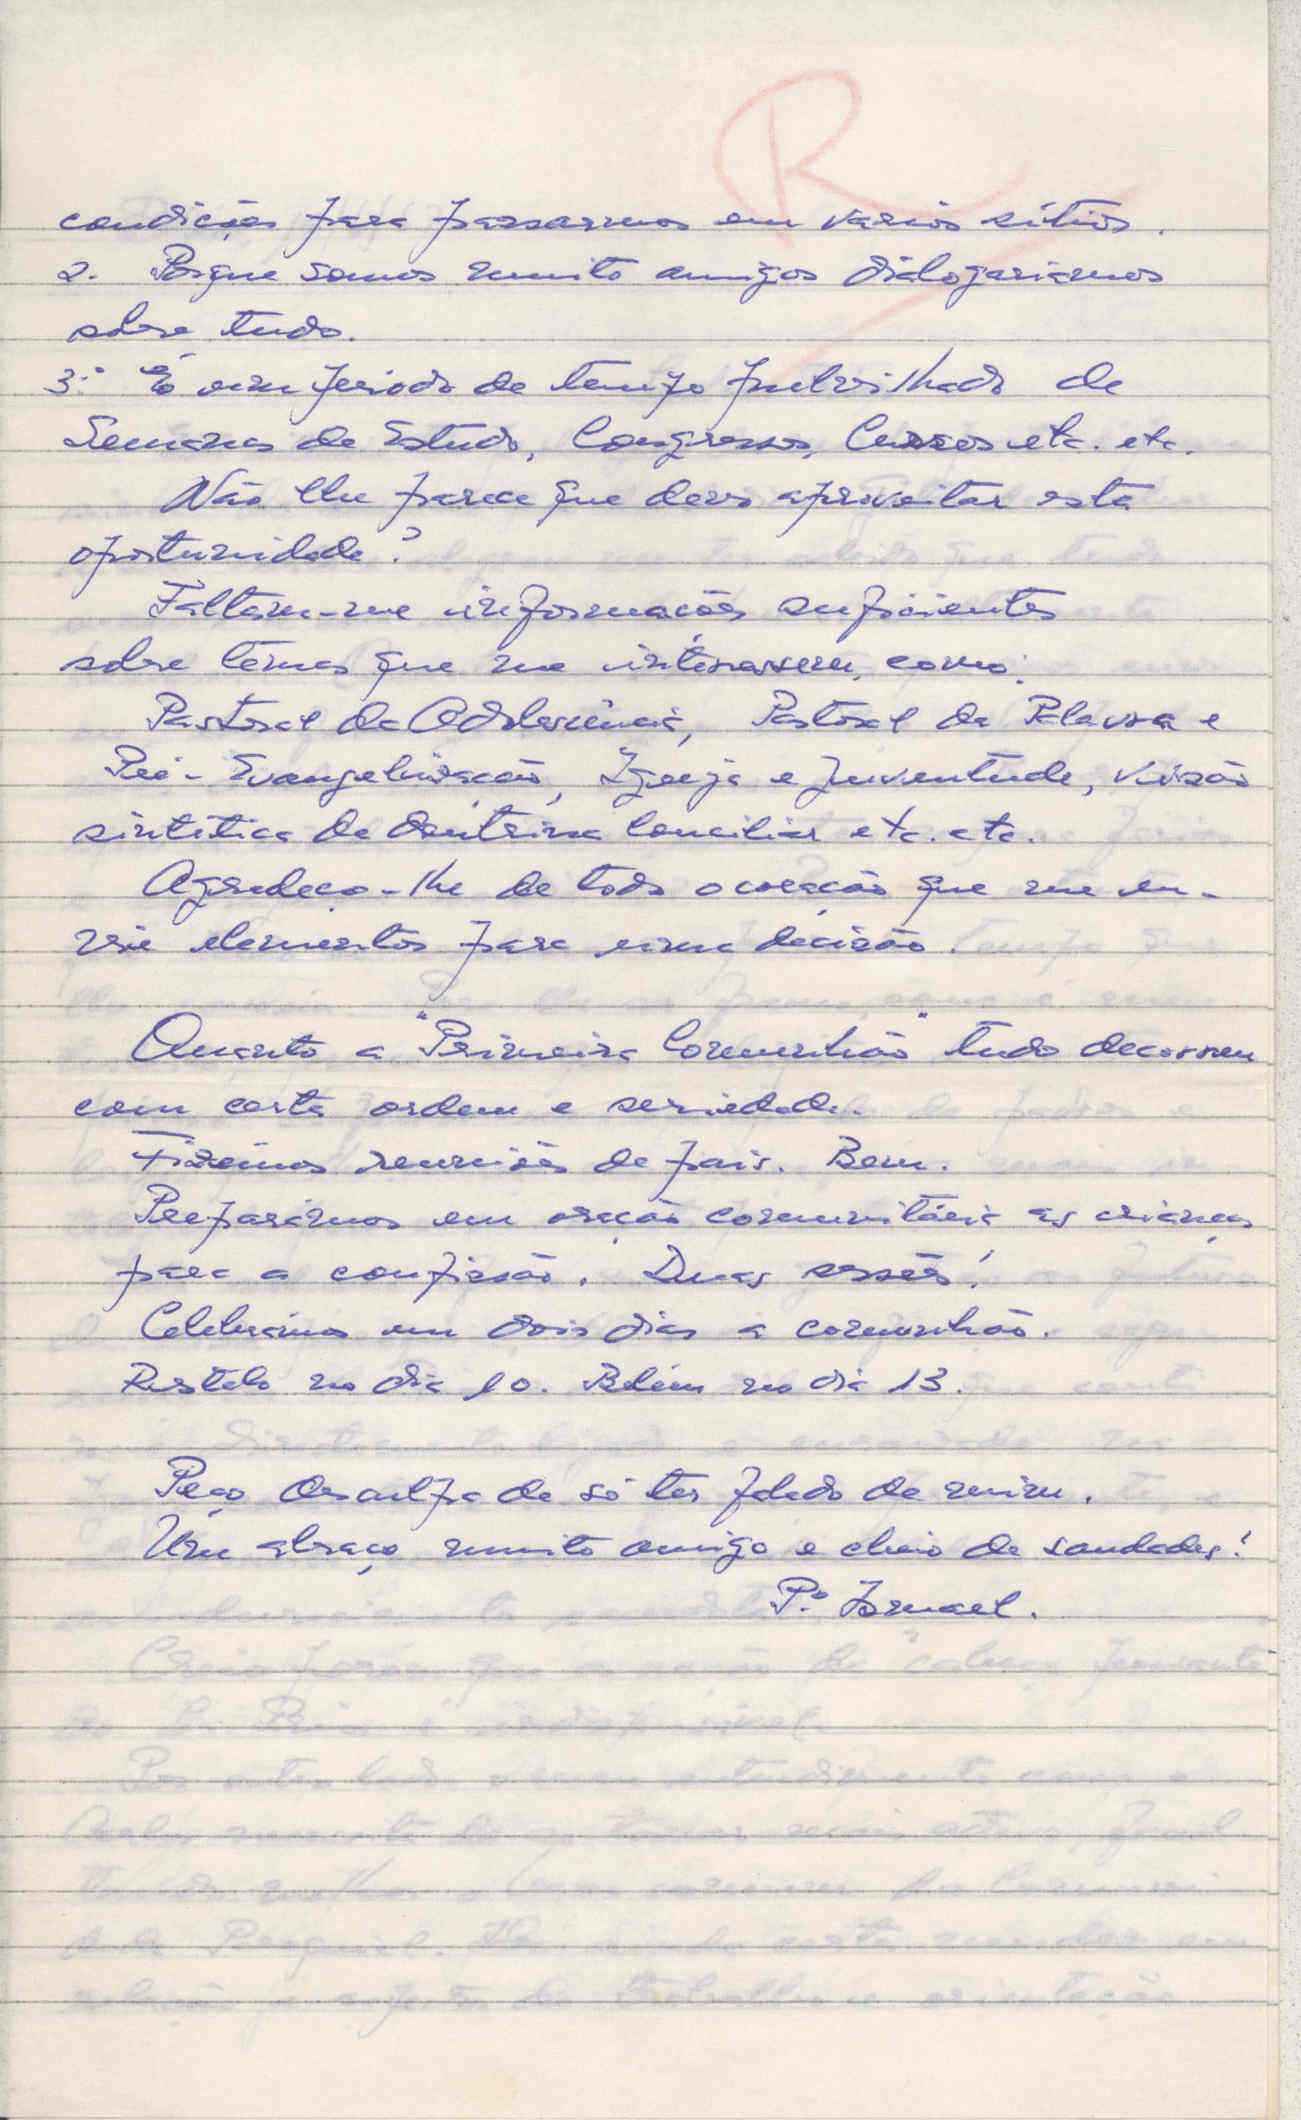 R
condições para passarmos em vários sítios.
2. Porque somos muito amigos dialogaríamos
sobre tudo.
3.º É um período de tempo polvilhado de
Semanas de Estudo, Congressos, Cursos etc. etc.
Não lhe parece que devo aproveitar esta
oportunidade?
Faltam-me informações suficientes
sobre temas que me interessem, como:
Pastoral da Adolescência, Pastoral da Palavra e
Pré-Evangelização, Igreja e Juventude, visão
sintética da doutrina Conciliar etc. etc.
Agradeço-lhe de todo o coração que me en-
vie elementos para uma decisão.
Quanto a "Primeira Comunhão" tudo decorreu
com certa ordem e seriedade.
Fizemos reuniões de pais. Bem.
Preparámos em oração comunitária as crianças
para a confissão. Duas sessões!
Celebrámos em dois dias a comunhão.
Restelo no dia 10. Belém no dia 13.
Peço desculpa de só ter falado de mim.
Um abraço muito amigo e cheio de saudades!
P.e Ismael.